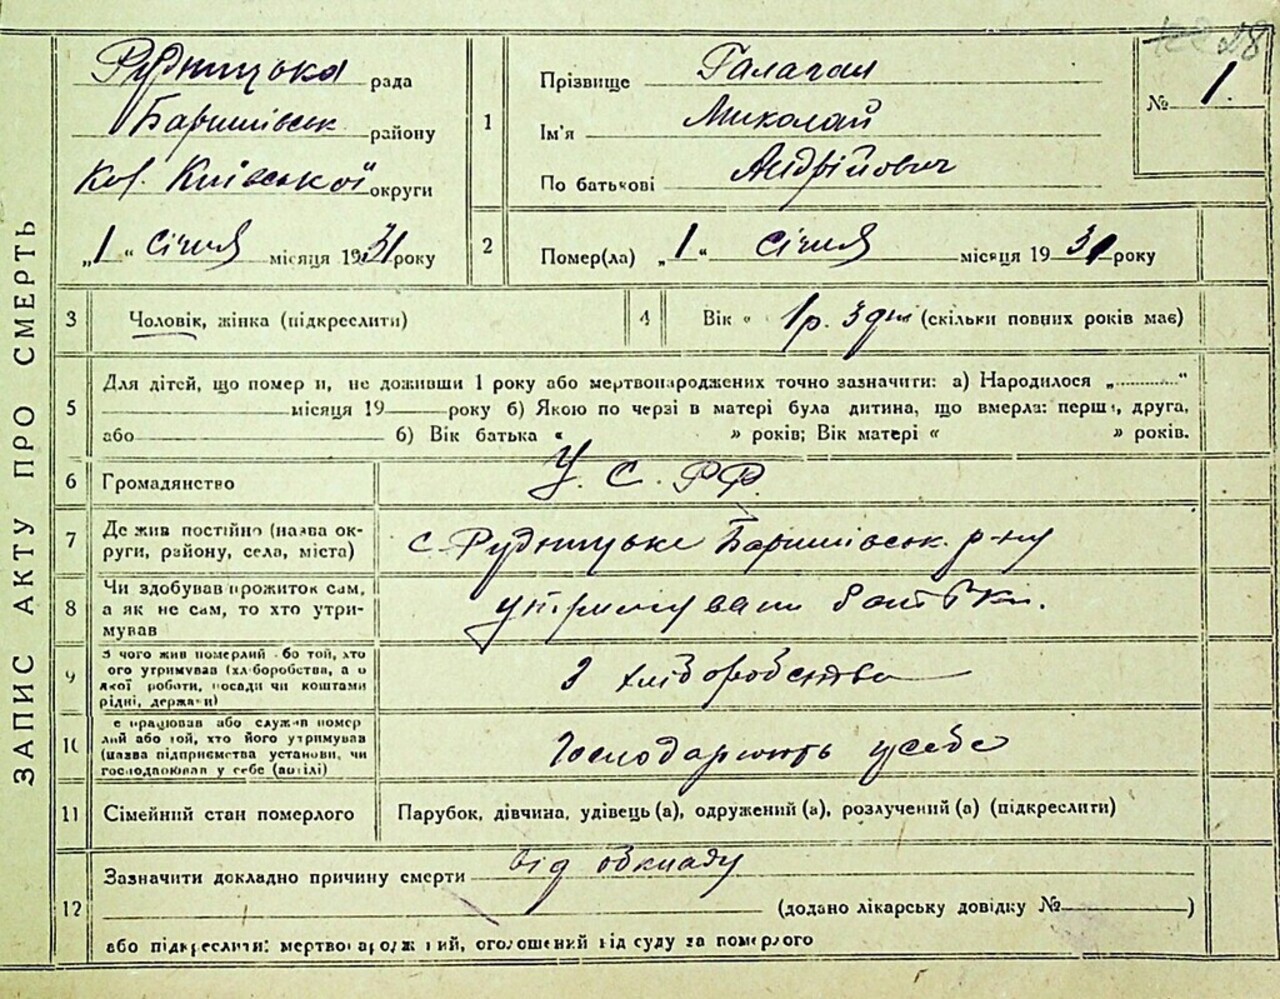 28
ЗАПИС АКТУ ПРО СМЕРТЬ
Рудницька рада
Баришівськ району
Киівськоі округи
„1“ січня місяця 1931 року
1 Прізвище Галаган
Ім'я Миколай
По батькові Андрійович
№ 1.
2 Помер(ла) „1“ січня місяця 1931 року
3 Чоловік, жінка (підкреслити)
4 Вік « 1 р. 3 дні (скільки повних років має)
5 Для дітей, що помер и, не доживши 1 року або мертвонароджених точно зазначити: а) Народилося „..........“
місяця 19 року б) Якою по черзі в матері була дитина, що вмерла: перша, друга,
або б) Вік батька « » років; Вік матері « » років.
6 Громадянство У. С. Р Р.
7 Де жив постійно (назва ок-
руги, району, села, міста) с. Рудницьке Баришівськ. р-ну
8 Чи здобував прожиток сам,
а як не сам, то хто утри-
мував утримували батьки.
9 З чого жив померлий бо той, хто
ого утримував (хл боробства, а о
якої роботи, посади чи коштами
рідні, держави) З хліборобства
10 е працював або служив помер
лий або той, хто його утримував
(назва підприємства установи, чи
господарював у себе (вдома) Господарюють у себе
11 Сімейний стан померлого Парубок, дівчина, удівець (а), одружений (а), розлучений (а) (підкреслити)
12 Зазначити докладно причину смерти від обкладу
(додано лікарську довідку № )
або підкреслити: мертвонароджений, оголошений від суду за померлого